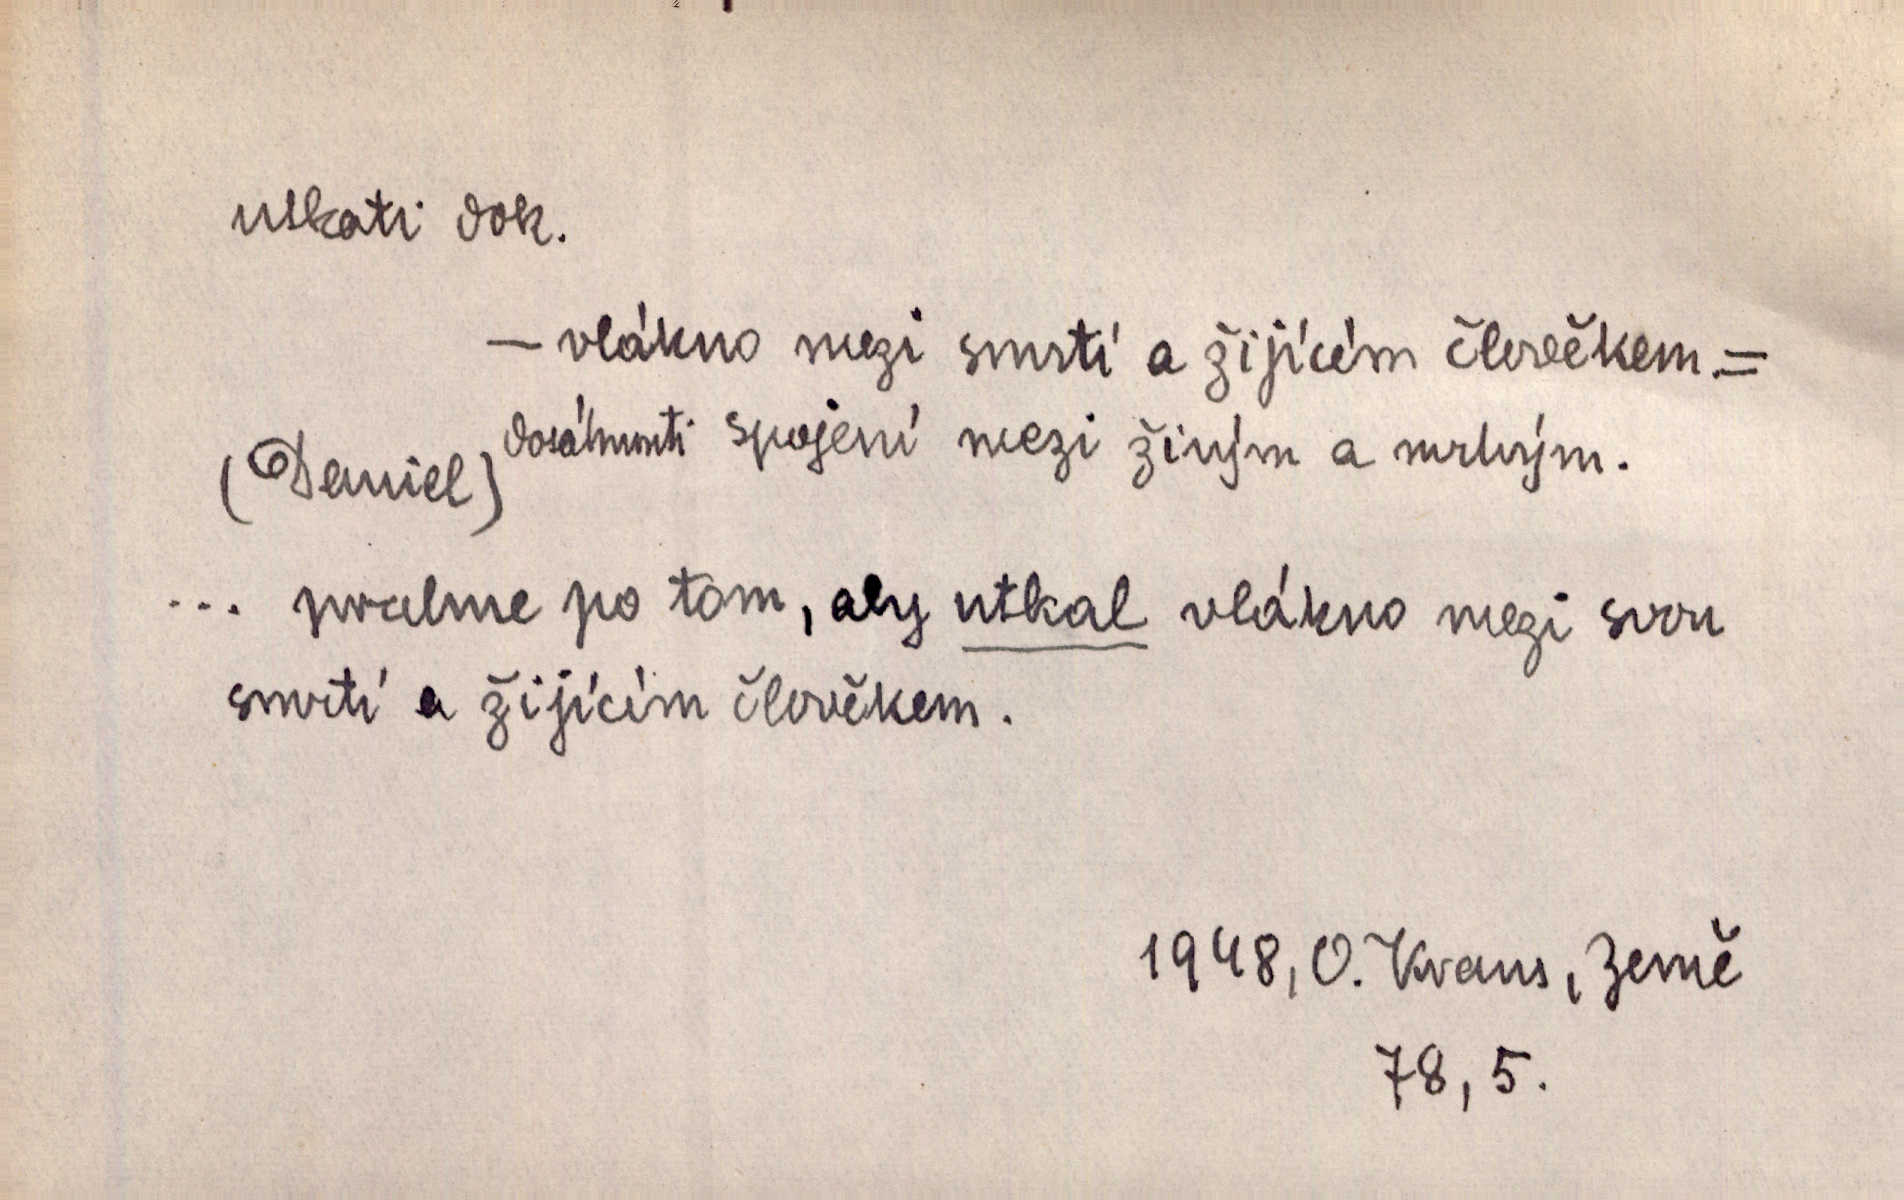 utkati dok.
— vlákno mezi smrtí a žijícím člověkem =
dosáhnouti spojení mezi živým a mrtvým.
(Daniel)
... prahne po tom, aby utkal vlákno mezi svou
smrtí a žijícím člověkem.
1948, O. Kraus, Země
78, 5.